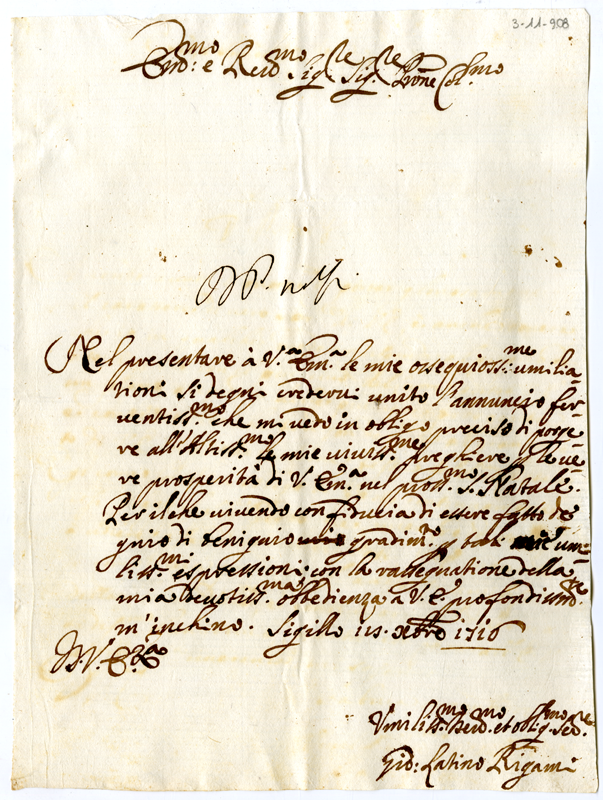 3-11-908
Em:mo e Reu:mo Sig:re Sig:re Prone Col:mo
Nel presentare à V.a Em.a le mie ossequioss:me umilia-
tioni si degni crederui unito l'annuncio fer-
uentiss:mo che mi uedo in obligo preciso di porge
re all'Altiss:mo le mie uiuiss:me preghiere p le ue
re prosperità di V. Em.a nel pross:mo S. Natale.
Per il che uiuendo con fiducia di essere fatto de
gno di benigno gradim.to p tali mie umi
liss:mi espressioni; con la rassegnatione della
mia deuotiss:ma obbedienza a V. E. profondam.te
m'inchino. Sigillo xbre 1710
D. V. Em.a
Vmiliss:mo Deuo:mo et obblig:mo Ser.e
Gio: Latino Rigami